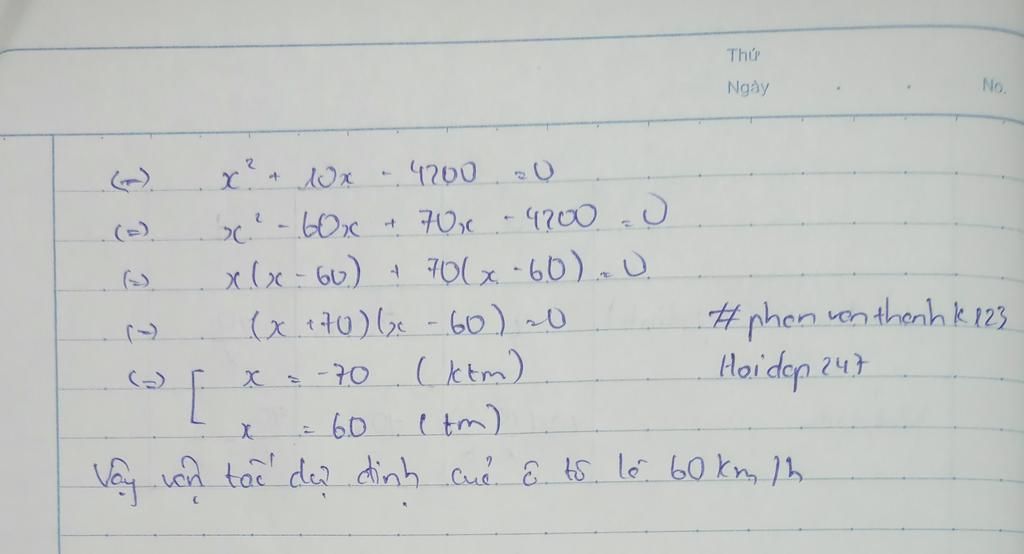 Thứ
Ngày . . No.
(=) x² + 10x - 4200 = 0
(=) x² - 60x + 70x - 4200 = 0
(=) x(x - 60) + 70(x - 60) = 0
(=) (x + 70)(x - 60) = 0 #phanvanthanhk123
(=) [ x = -70 (ktm) Hoidap247
x = 60 (tm)
Vậy vận tốc dự định của ô tô là 60 km/h